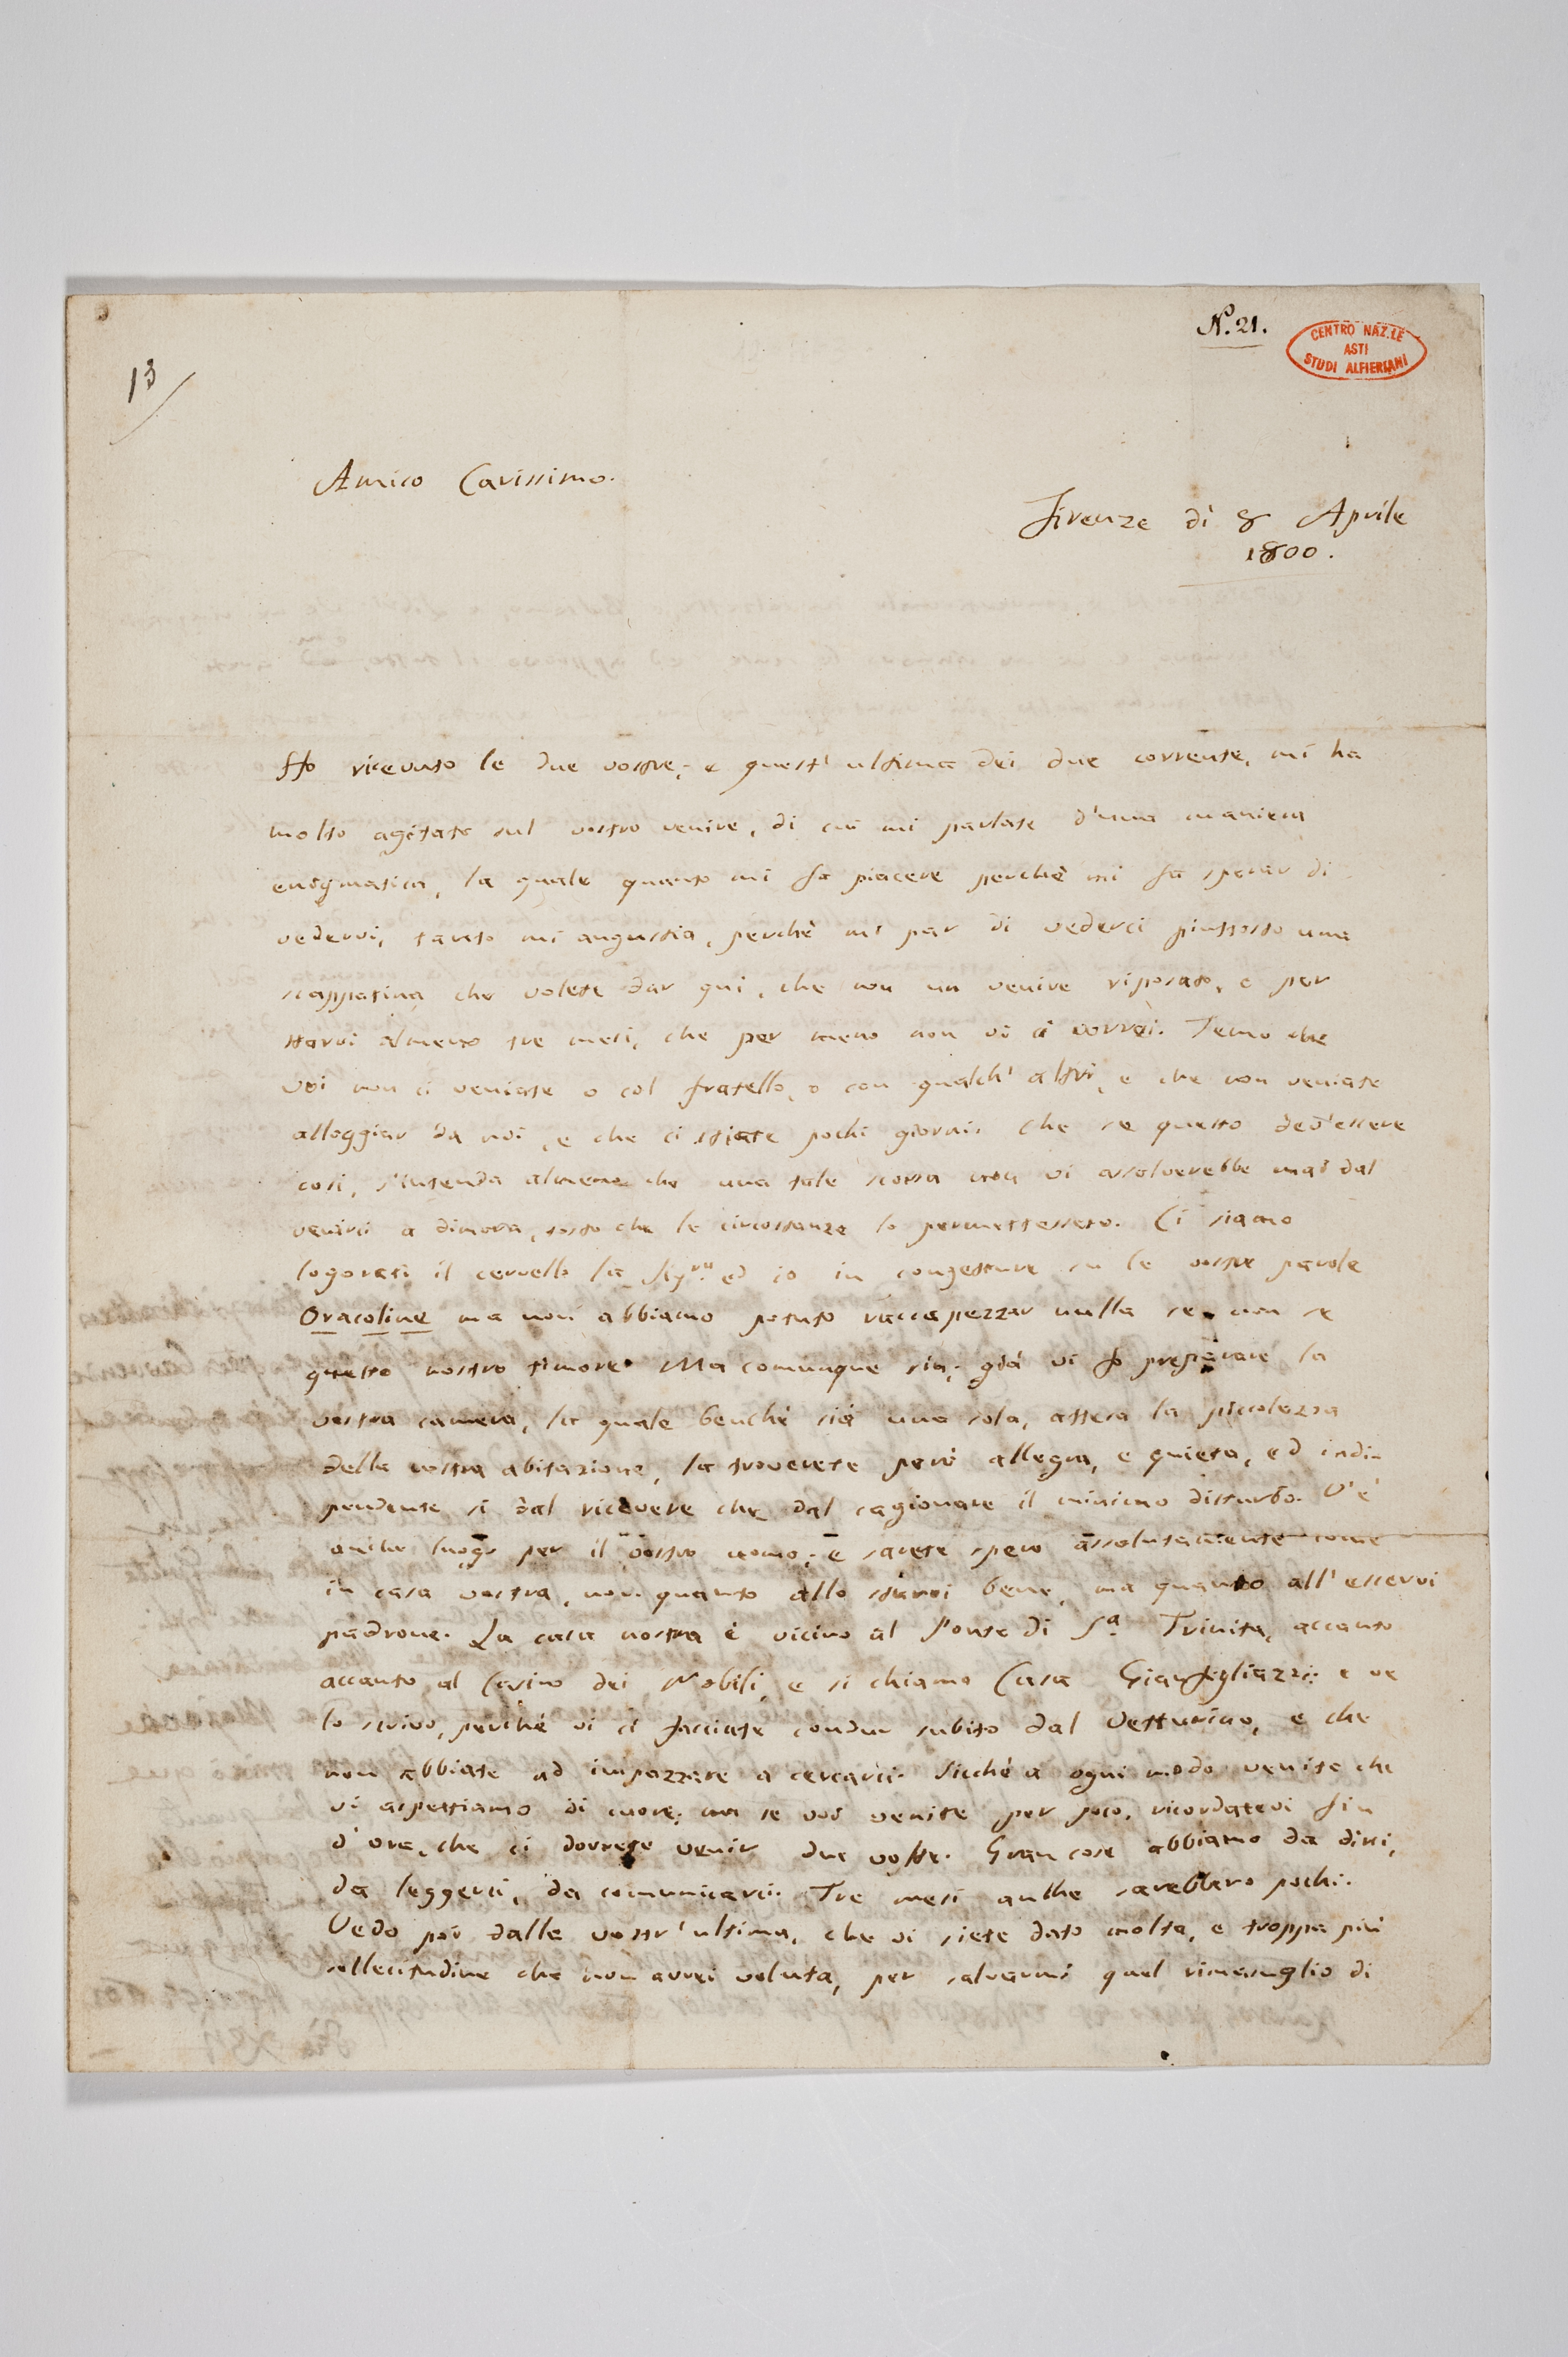 N. 21.
CENTRO NAZ.LE
ASTI
STUDI ALFIERIANI
13
Amico Carissimo.
Firenze dì 8 Aprile
1800.
Ho ricevuto le due vostre; e quest'ultima dei due corrente, mi ha
molto agitato sul vostro venire, di cui mi parlate d'una maniera
enigmatica, la quale quanto mi fa piacere perchè mi fa sperar di
vedervi, tanto mi angustia, perchè mi par di vederci piuttosto una
scappatina che volete dar qui, che non un venire riposato, e per
starvi almeno tre mesi, che per meno non vi ci vorrei. Temo che
voi non ci veniate o col fratello, o con qualch'altri, e che non veniate
alloggiar da noi, e che ci stiate pochi giorni. Che se questo dev'essere
così, s'intenda almeno che una tale scorsa non vi assolverebbe mai dal
venirci a dimora, tosto che le circostanze lo permettessero. Ci siamo
logorati il cervello la Sig.ra ed io in congetture su le vostre parole
Oracoline ma non abbiamo potuto raccapezzar nulla se non se
questo nostro timore. Ma comunque sia, già vi fo preparare la
vostra camera, la quale benchè sia una sola, attesa la piccolezza
della nostra abitazione, la troverete però allegra, e quieta, ed indi-
pendente sì dal ricevere che dal cagionare il minimo disturbo. V'è
anche luogo per il vostro uomo; e sarete spero assolutamente come
in casa vostra, non quanto allo starvi bene, ma quanto all'esservi
padrone. La casa nostra è vicino al Ponte di S.a Trinita, accanto
accanto al Casino dei Nobili, e si chiama Casa Gianfigliazzi: e ve
lo scrivo, perchè vi ci facciate condur subito dal Vetturino, e che
non abbiate ad impazzare a cercarci. Sicchè a ogni modo venite che
vi aspettiamo di cuore; ma se voi venite per poco, ricordatevi fin
d'ora, che ci dovrete venir due volte. Gran cose abbiamo da dirci,
da leggerci, da comunicarci. Tre mesi anche sarebbero pochi.
Vedo poi dalla vostr'ultima, che vi siete dato molta, e troppa più
sollecitudine che non avrei voluta, per salvarmi quel rimasuglio di